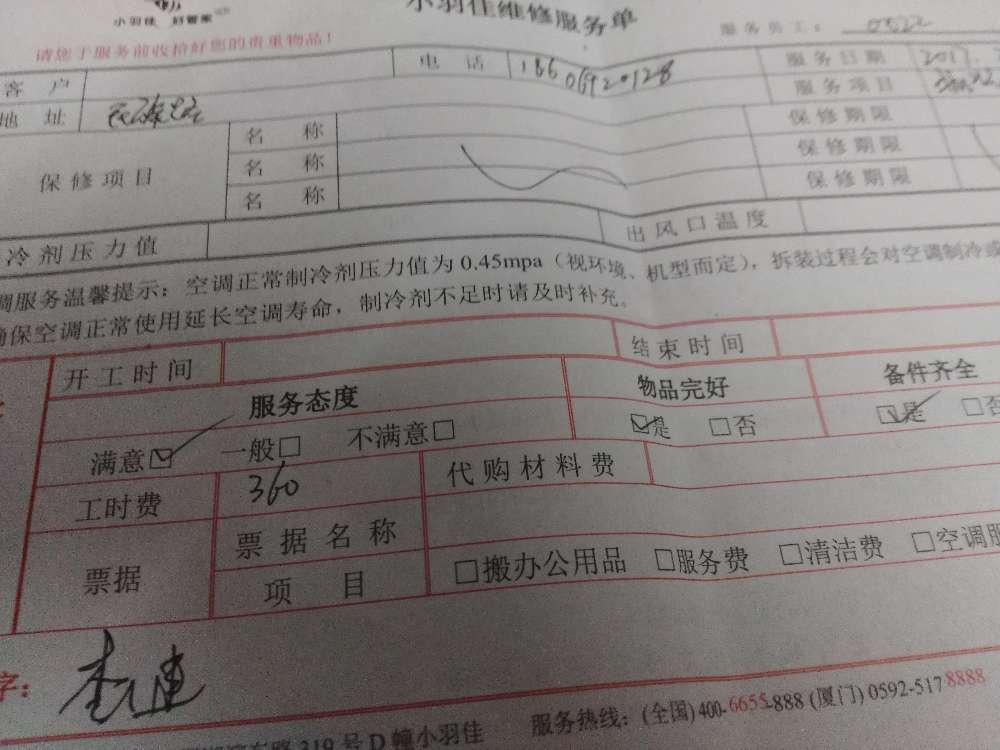 小羽佳 好管家
小羽佳维修服务单
服务员工: 0522
请您于服务前收拾好您的贵重物品!
客户 电话 18606920128 服务日期 2017.
地址 服务项目
保修项目 名称 保修期限
名称 保修期限
名称 保修期限
冷剂压力值 出风口温度
调服务温馨提示: 空调正常制冷剂压力值为 0.45mpa (视环境、机型而定), 拆装过程会对空调制冷或
确保空调正常使用延长空调寿命, 制冷剂不足时请及时补充。
开工时间 结束时间
服务态度 物品完好 备件齐全
满意☑ 一般□ 不满意□ ☑是 □否 ☑是 □否
工时费 360 代购材料费
票据 票据名称
项目 □搬办公用品 □服务费 □清洁费 □空调服
字:
319 号 D 幢小羽佳 服务热线: (全国) 400-6655-888 (厦门) 0592-5178888